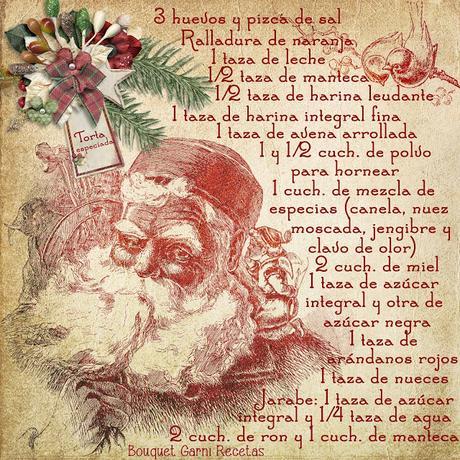 3 huevos y pizca de sal
Ralladura de naranja
1 taza de leche
1/2 taza de manteca
1/2 taza de harina leudante
1 taza de harina integral fina
1 taza de avena arrollada
1 y 1/2 cuch. de polvo
para hornear
1 cuch. de mezcla de
especias (canela, nuez
moscada, jengibre y
clavo de olor)
2 cuch. de miel
1 taza de azúcar
integral y otra de
azúcar negra
1 taza de
arándanos rojos
1 taza de nueces
Jarabe: 1 taza de azúcar
integral y 1/4 taza de agua
2 cuch. de ron y 1 cuch. de manteca
Torta
especiada
Bouquet Garni Recetas